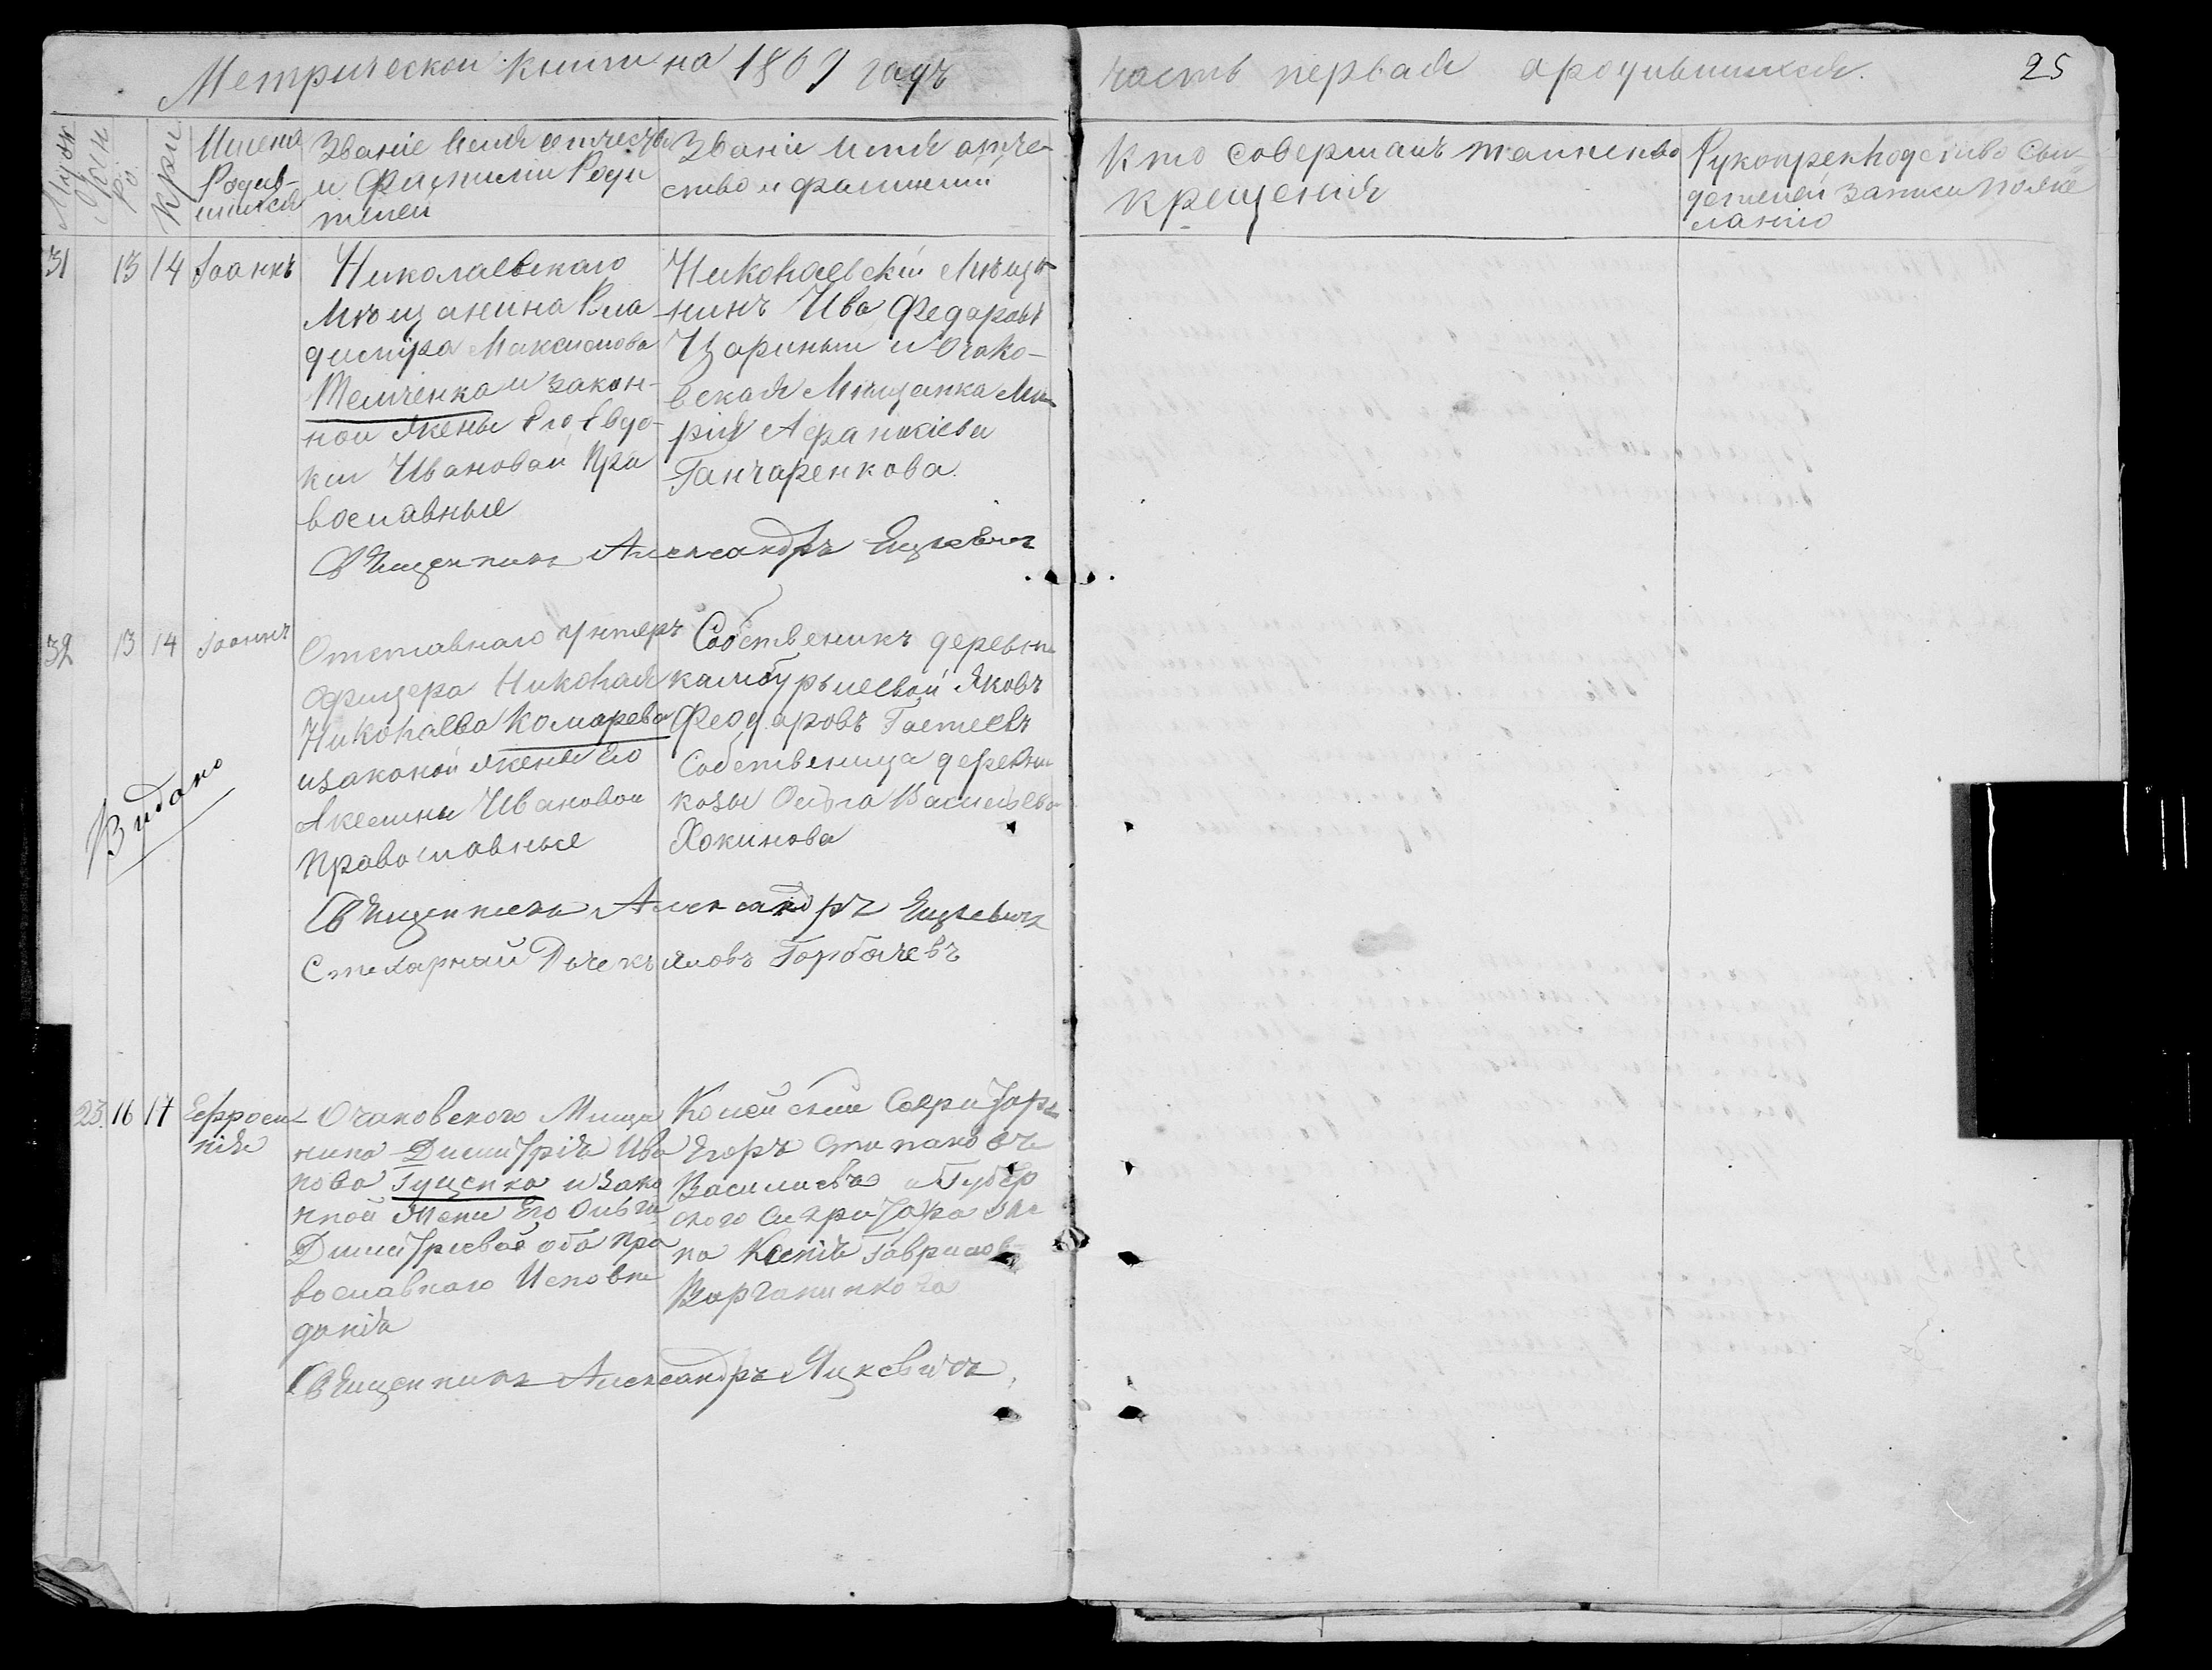 Метрической книги на 1869 годъ
часть первая ародившихся.
25
Имена
Родив-
шихся
Званіе Имя отчество
и Фамилии Роди
телей
Звание имя отче-
ство и фамилии
Кто совершалъ таинство
крещения
Рукопрекподство Сви-
детелей записи пояже
ланию
31
13
14
Іоаннъ
Николаевскаго
Мѣщанина Вла
димира Максимова
Темченка и закон-
ной жены его Евдо-
кіи Ивановой Пра
вославные
Николаевскій Мѣща-
нинъ Ива Федоровъ
Цариный и Очако-
вская Мѣщанка Ма-
рия Афанасіева
Ганчаренкова.
Священникъ Александръ Яцкевичъ
32
13
14
Іоаннъ
Отставнаго унтеръ
офицера Николая
Николаева Комарева
и законой жены его
Акесины Ивановой
Православные
Собственикъ деревни
камбурлиевой Яковъ
Феодаровъ Гастеевъ
Собственица деревни
козы Ольга Василье
Хокинова
Видано
Священникъ Александръ Яцкевичъ
Стихарный Дьячекъ Іаковъ Горбачевъ
23.
16
17
Ефроси-
нія
Очаковского Мища
нина Димитрія Ива
нова Гущенка и зако
нной Жени Его Ольги
Димитриевой оба пра
вославнаго Исповѣ
данія
Колейский Секритарь
Егоръ Стипановъ
Василиевъ и Губер
ского Сикритаря Же
на Ксенія Гаврилов
Варганинкова
Священникъ Александръ Яцкевичъ